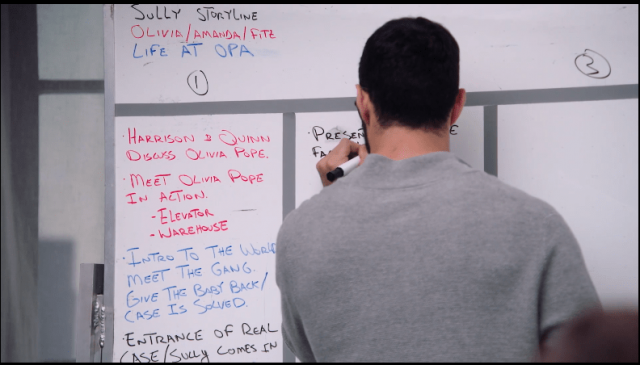 SULLY STORYLINE
OLIVIA/AMANDA/FITZ
LIFE AT OPA
1
3
· HARRISON & QUINN
DISCUSS OLIVIA POPE.
· MEET OLIVIA POPE
IN ACTION.
- ELEVATOR
- WAREHOUSE
· INTRO TO THE WORLD
MEET THE GANG.
GIVE THE BABY BACK/
CASE IS SOLVED.
· ENTRANCE OF REAL
CASE/SULLY COMES IN